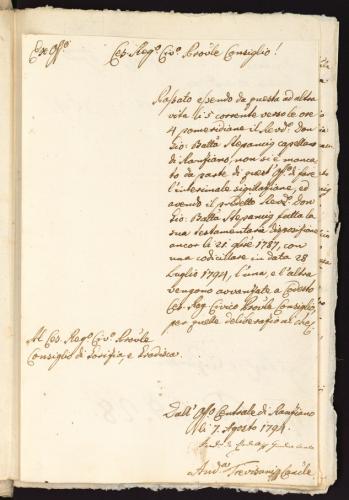 Ex Offo
Ces. Rego. Civo. Provle Consiglio!
Passato essendo da questa ad altra
vita li 5 corrente verso le ore
4 pomeridiane il Revdo. Don
Gio: Batta Stepancig capellano
di Ranziano, non si è manca-
to da parte di quest'Offo. di fare
l'interinale sigillazione, ed
avendo il predetto Revdo. Don
Gio: Batta Stepancig fatta la
sua testamentaria disposizione
ancor li 21 1787, con
una codicillare in data 28
Luglio 1794, l'una, e l'altra
vengono avvanzate a Codesto
Ces. Reg. Civico Provle Consiglio,
per quelle deliberazioni che
Al Ces. Rego. Civo. Provle
Consiglio di Gorizia, e Gradisca.
Dall'Offo Centrale di Ranziano
li 7. Agosto 1794.